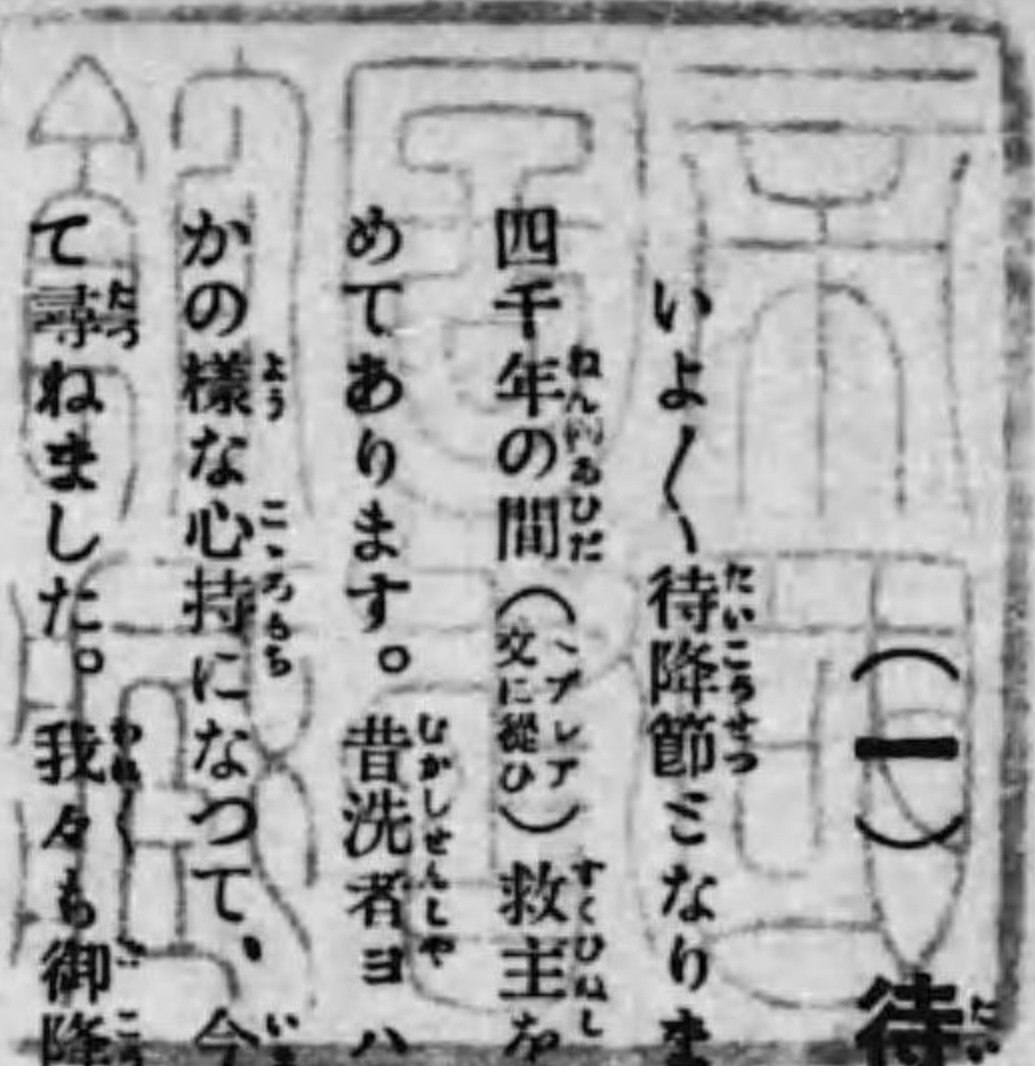 (一) 待
いよ〱待降節ミなりま
四千年の間(ヘブレア文に從ひ)救主を
めてあります。昔洗者ヨハ
かの樣な心持になつて、今
て尋ねました。我々も御降